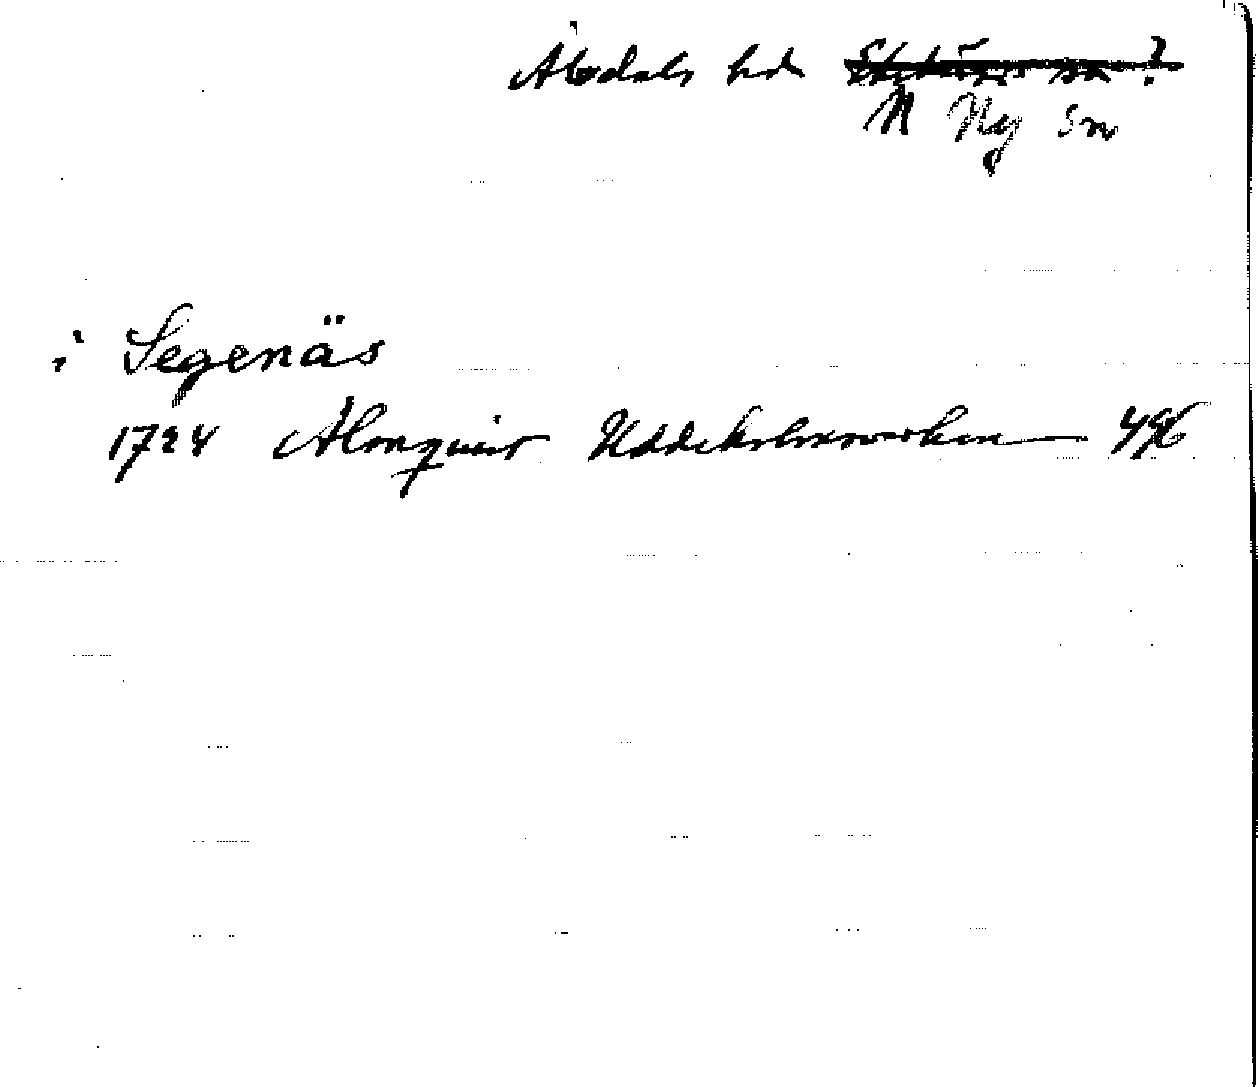 Älvdals hd
N Ny sn
i Segenäs
1724 Almquist Uddeholmsverken 496